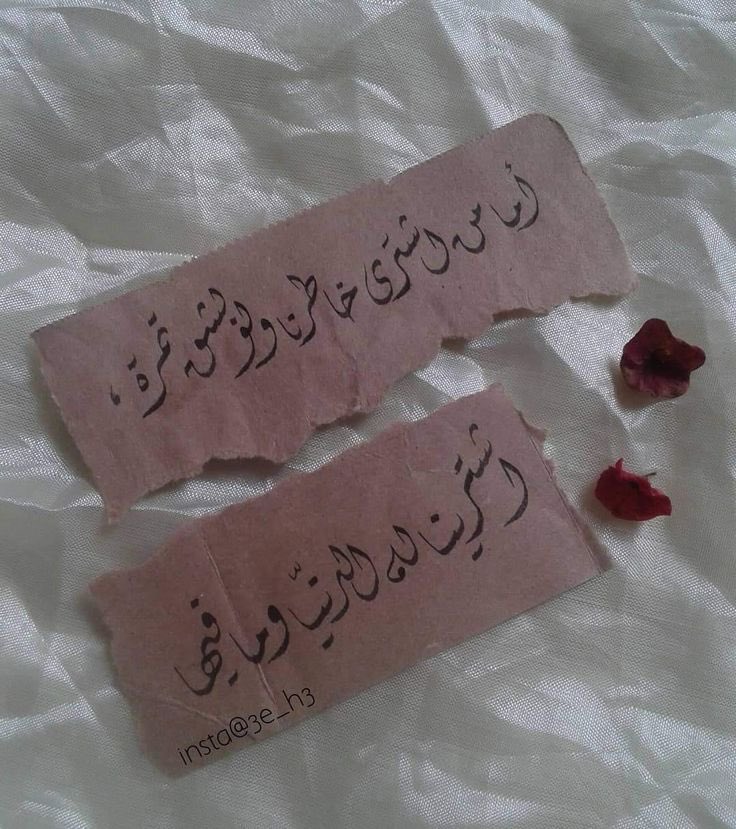 أما من اشترى خاطرنا ولو بشق تمرة ،
اشترينا له الدنيّا وما فيها
insta@3e_h3